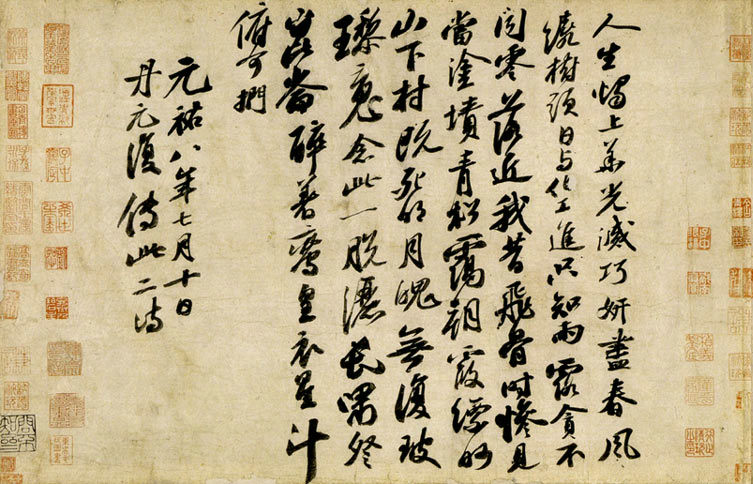 人生燭上華光滅巧妍盡春風
繞樹頭日与化工進只知雨露貪不
聞零落近我昔飛骨時慘見
當塗墳青松靄朝霞縹緲
山下村既死明月魄無復玻
瓈魂念此一脫灑長嘯登
崑崙醉著鸞皇衣星斗
俯可捫
元祐八年七月十日
丹元復傳此二詩